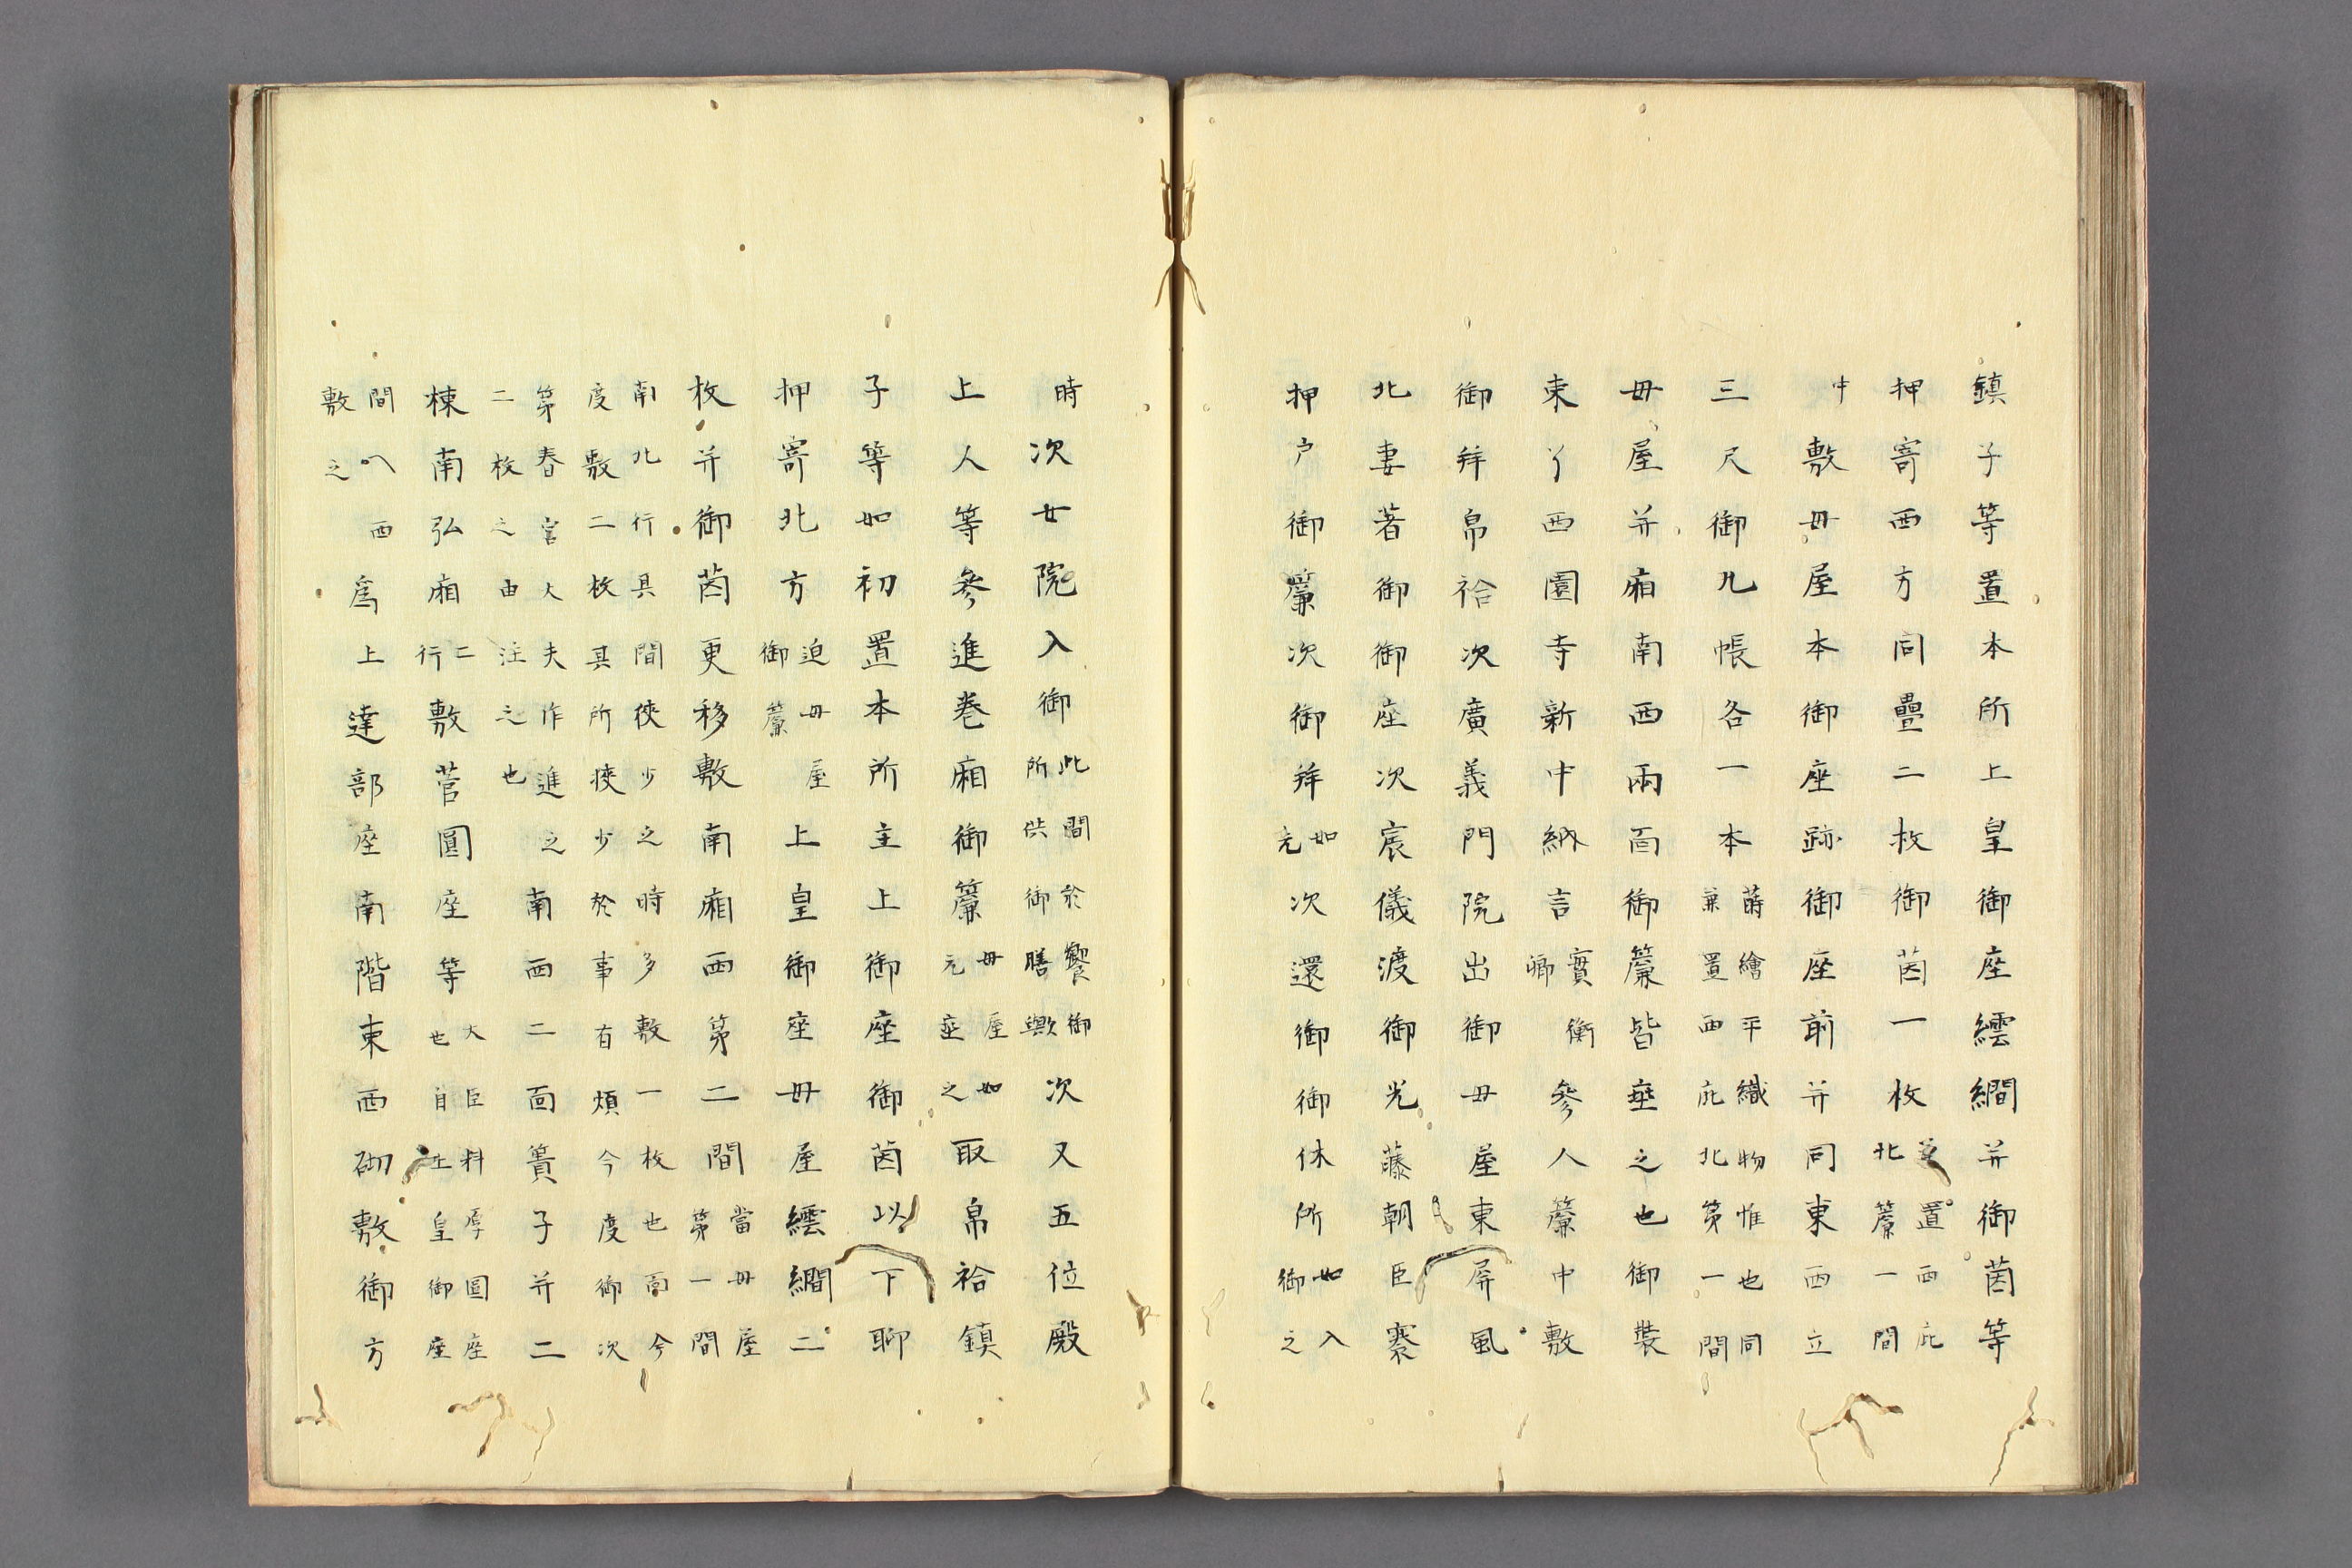 鎮子等置本所上皇御座繧繝并御茵等
押寄西方同疊二枚御茵一枚置西庇北簾一間
中敷母屋本御座跡御座前并同東西立
三尺御几帳各一本蒔繪平織物帷也同兼置西庇北第一間
母屋并廂南西兩面御簾皆垂之也御裝
束了西園寺新中納言實衡卿參人簾中敷
御拜帛袷次廣義門院出御母屋東屏風
北妻著御御座次宸儀渡御光藤朝臣褰
押戸御簾次御拜如元次還御御休所如入御之
時次女院入御此間於饗御所供御膳歟次又五位殿
上人等參進卷廂御簾母屋如元垂之取帛袷鎮
子等如初置本所主上御座御茵以下聊
押寄北方迫母屋御簾上皇御座母屋繧繝二
枚并御茵更移敷南廂西第二間當母屋第一間
南北行其間俠少之時多敷一枚也而今度敷二枚其所狹少於事有煩今度御次
第春宮大夫作進之二枚之由注之也南西二面簀子并二
棟南弘廂二行敷菅圓座等大臣料厚圓座也自上皇御座
間以西敷之爲上達部座南階東西砌敷御方